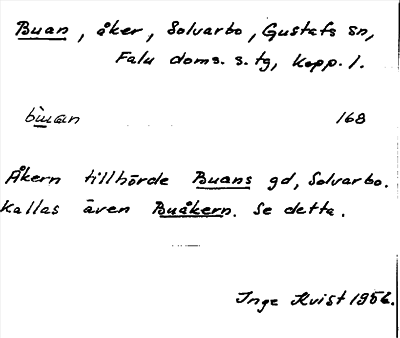 Buan, åker, Solvarbo, Gustafs sn,
Falu doms. s. tg, Kopp. l.
168
Åkern tillhörde Buans gd, Solvarbo.
Kallas även Buåkern. Se detta.
Inga Kvist 1956.